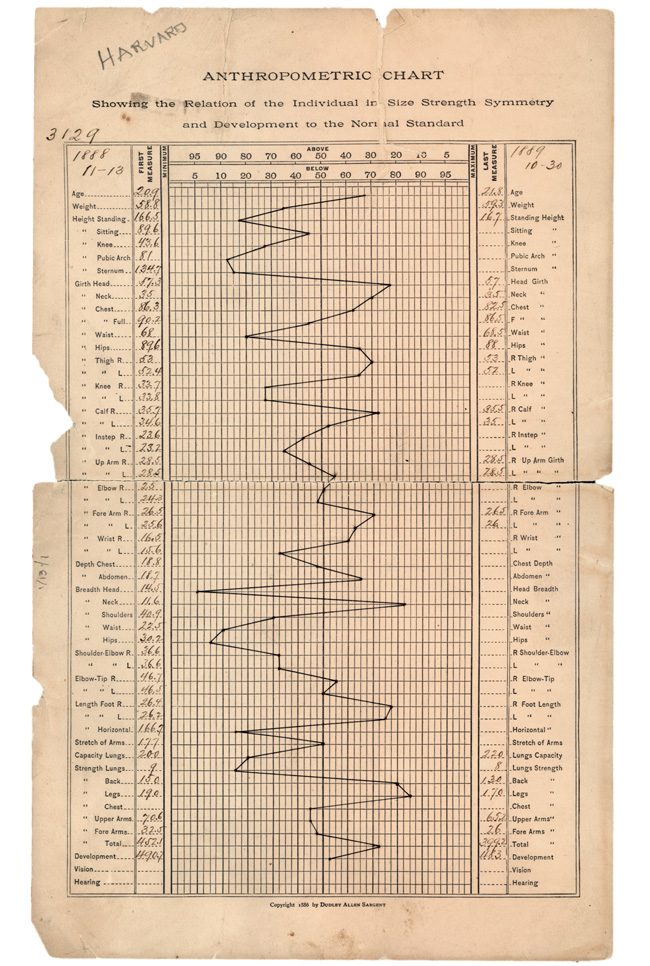 HARVARD
ANTHROPOMETRIC CHART
Showing the Relation of the Individual in Size Strength Symmetry
and Development to the Normal Standard
3129
1888
11-13
FIRST MEASURE
MINIMUM
ABOVE
95 90 80 70 60 50 40 30 20 10 5
BELOW
5 10 20 30 40 50 60 70 80 90 95
MAXIMUM
LAST MEASURE
1889
10-30
Age 20.9 21.8 Age
Weight 58.8 59.3 Weight
Height Standing 166.5 16.7 Standing Height
" Sitting 89.6 Sitting "
" Knee 43.6 Knee "
" Pubic Arch 81 Pubic Arch "
" Sternum 134.7 Sternum "
Girth Head 57.3 57 Head Girth
" Neck 35 35 Neck "
" Chest 86.3 Chest "
" " Full 90.2 86.5 F " "
" Waist 68 68.5 Waist "
" Hips 89.6 88 Hips "
" Thigh R 53 53 R Thigh "
" " L 52.4 52 L " "
" Knee R 32.7 R Knee "
" " L 32.8 L " "
" Calf R 35.7 35.5 R Calf "
" " L 34.6 35 L " "
" Instep R 23.6 R Instep "
" " L 23.2 L " "
" Up Arm R 28.5 28.5 R Up Arm Girth
" " L 28.5 28.5 L " " "
" Elbow R 25 R Elbow "
" " L 24.2 L " "
" Fore Arm R 26.5 26.5 R Fore Arm "
" " L 25.6 26 L " "
" Wrist R 16.5 R Wrist "
" " L 15.6 L " "
Depth Chest 18.8 Chest Depth
" Abdomen 18.7 Abdomen "
Breadth Head 14.5 Head Breadth
" Neck 11.6 Neck "
" Shoulders 40.9 Shoulders "
" Waist 22.5 Waist "
" Hips 30.2 Hips "
Shoulder-Elbow R 36.6 R Shoulder-Elbow
" " L 36.6 L " "
Elbow-Tip R 46.7 R Elbow-Tip
" " L 46.5 L " "
Length Foot R 26.4 R Foot Length
" " L 26.2 L " "
" Horizontal 166.7 Horizontal "
Stretch of Arms 177 Stretch of Arms
Capacity Lungs 200 220 Lungs Capacity
Strength Lungs 9 8 Lungs Strength
" Back 150 130 Back "
" Legs 190 170 Legs "
" Chest Chest "
" Upper Arms 70.6 Upper Arms "
" Fore Arms 32.5 26 Fore Arms "
" Total Total "
Development Development
Vision Vision
Hearing Hearing
Copyright 1886 by DUDLEY ALLEN SARGENT